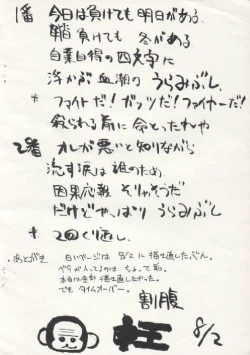 1番 今日は負けても明日がある。
負けても 冬がある
自業自得の四文字に
浮かぶ血潮の うらみぶし
* ファイトだ!ガッツだ!ファイヤーだ!
殺られる前に命とったれや
2番 オレが悪いと知りながら
流す涙は誰のため
因果応報 そりゃそうだ
だけどやっぱり うらみぶし
* 2回くり返し。
あとがき 白いページは 8/2 に描き直したぶん。
ベタが入ってるのは ちょっと前。
本当は全部描き直したかった。
でも タイムオーバー。
割腹
8/2